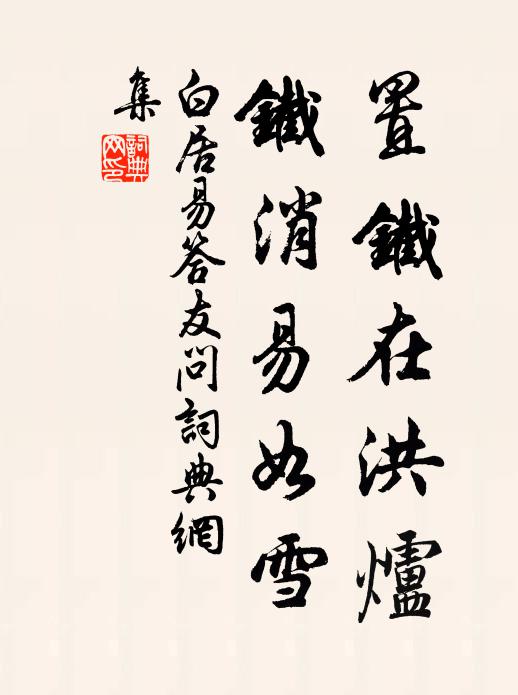 置鐵在洪爐
鐵消易如雪
白居易答友問詞典網
集
詞典網印